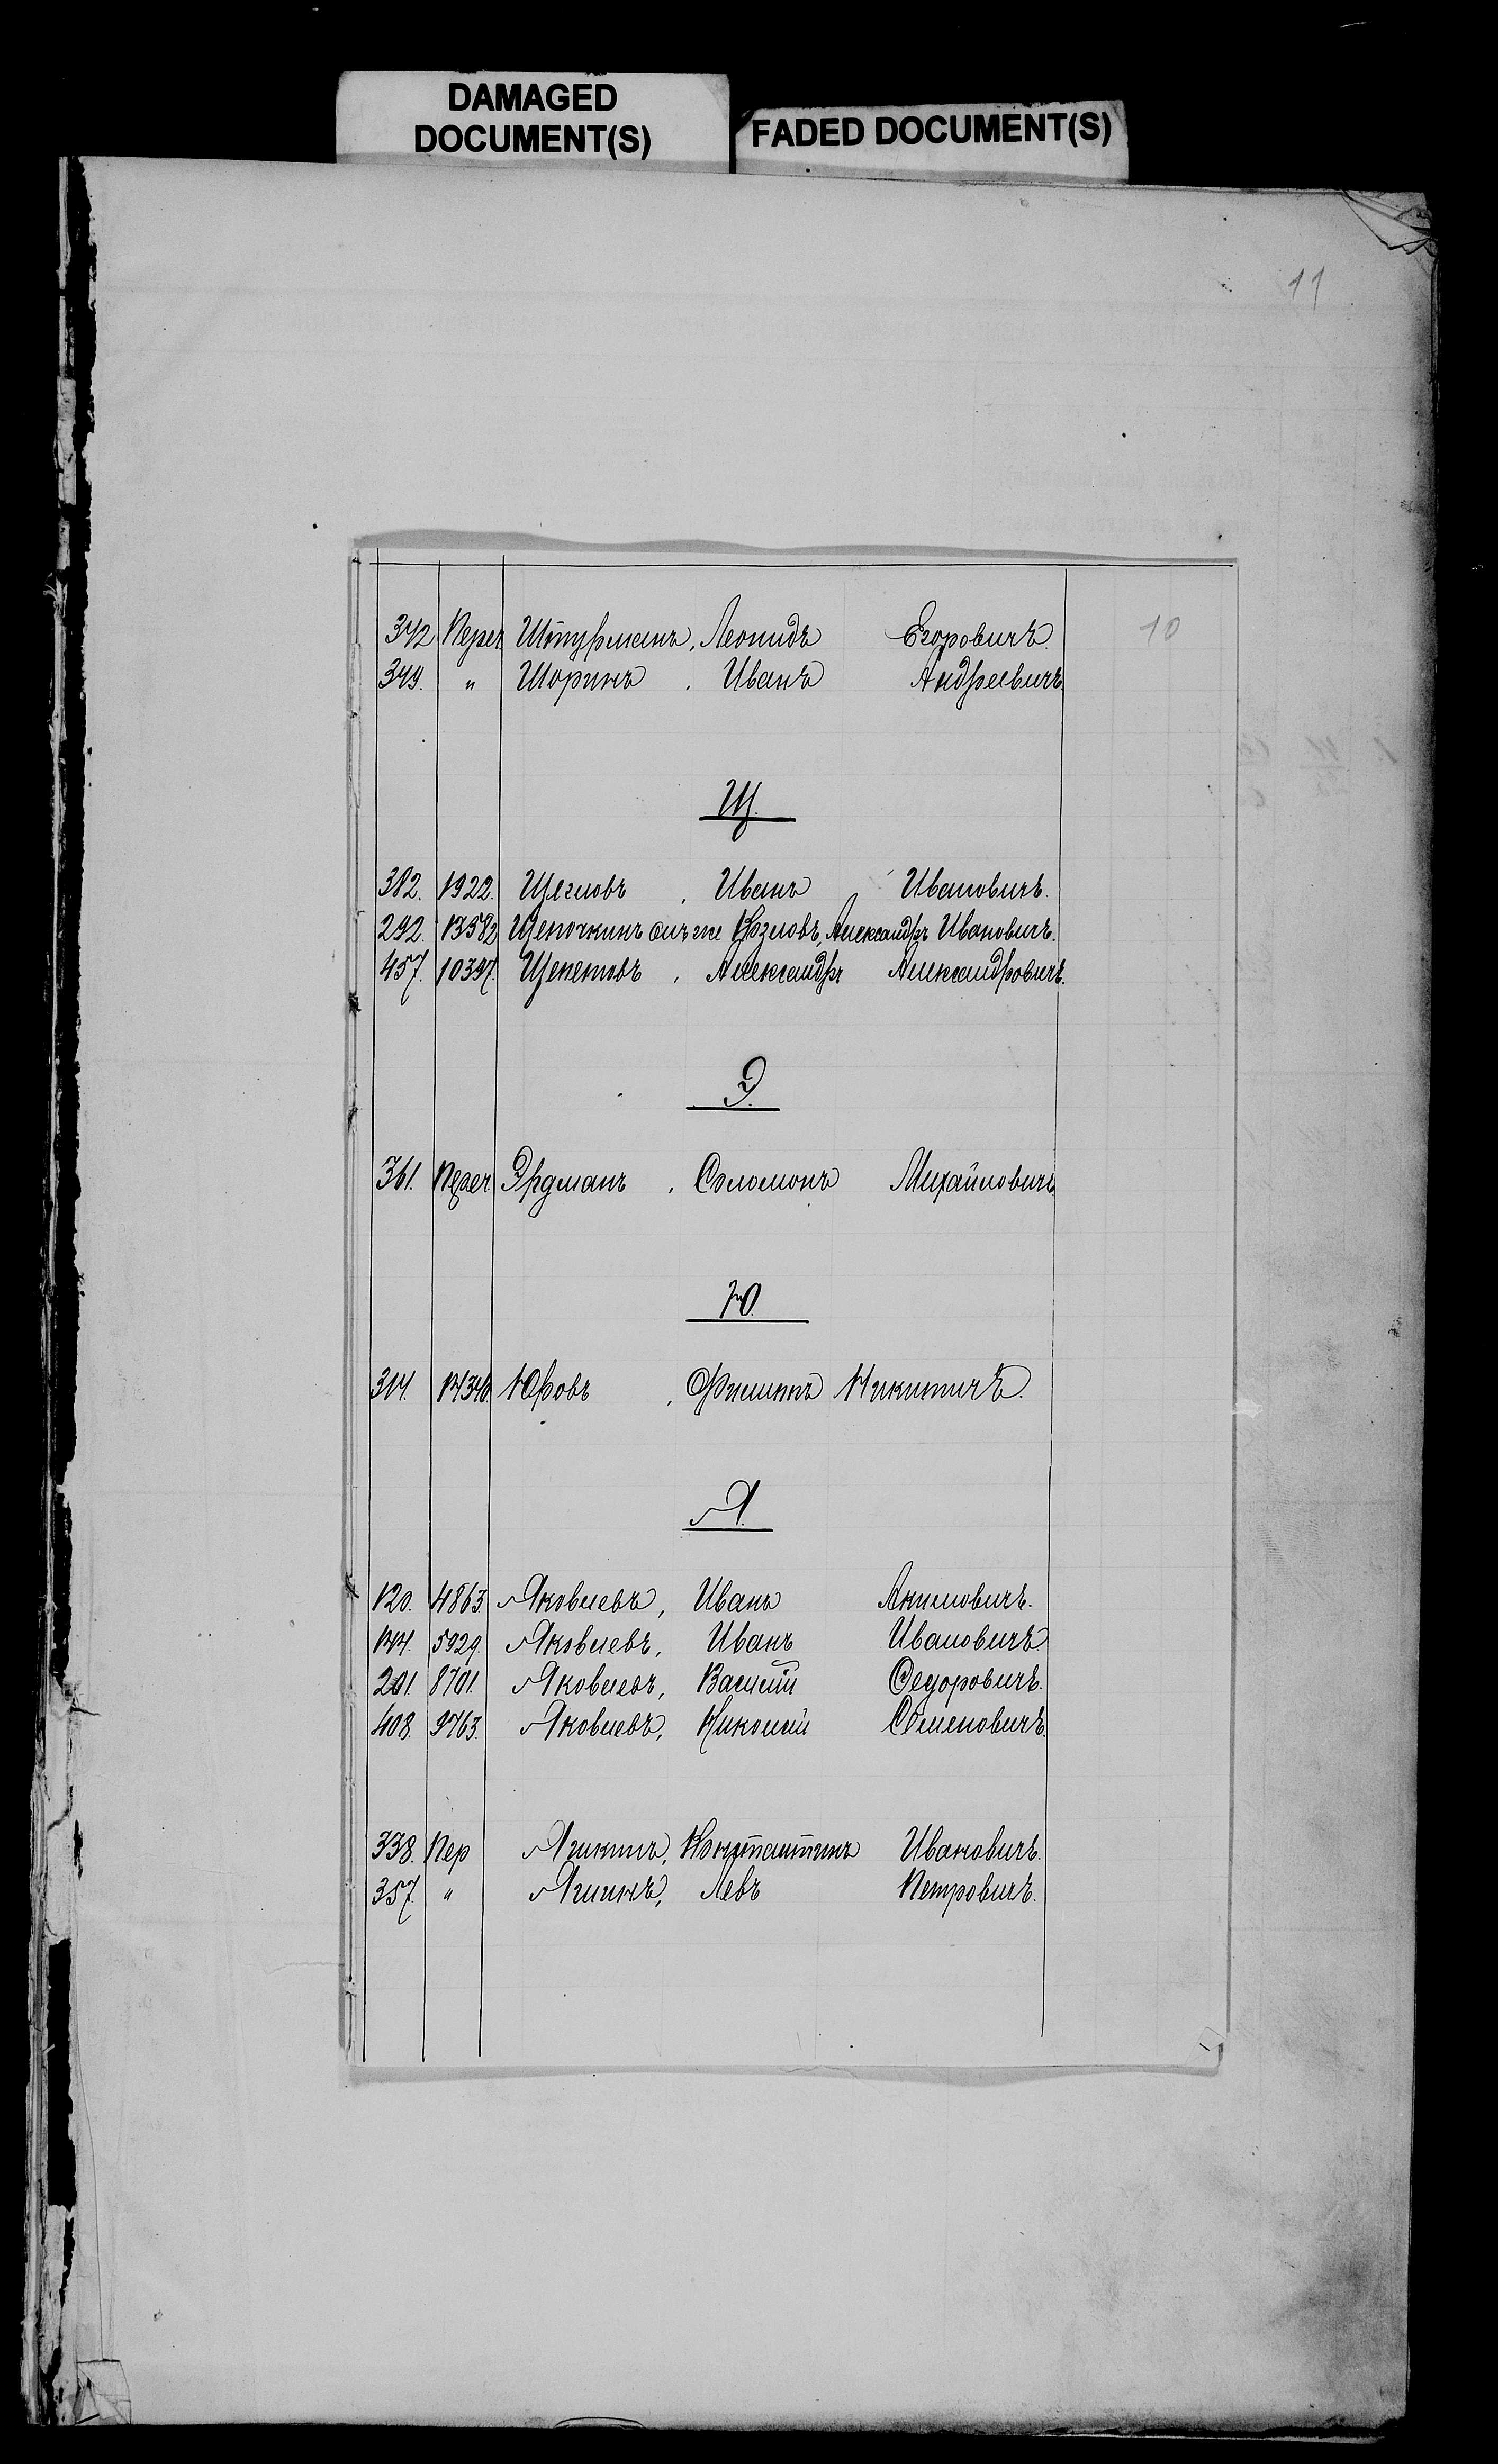 DAMAGED
DOCUMENT(S)
FADED DOCUMENT(S)
11
10
342 Перег Штурманъ, Леонидъ Егоровичъ.
349. " Шоринъ, Иванъ Андреевичъ
Щ.
382. 1922. Щегловъ, Иванъ Ивановичъ.
292. 13582 Щепочкинъ онъ же Козловъ, Александръ Ивановичъ.
457. 10397. Щепетовъ, Александръ Александровичъ.
Э.
361. Перег Эрдманъ, Соломонъ Михайловичъ
Ю.
314. 14346. Юровъ, Филиппъ Никитичъ.
Я.
120. 4863 Яковлевъ, Иванъ Акимовичъ.
144. 5929. Яковлевъ, Иванъ Ивановичъ.
201. 8701. Яковлевъ, Василій Федоровичъ.
408. 9763. Яковлевъ, Николай Семеновичъ.
338. Пер Константинъ Ивановичъ.
357. " Левъ Петровичъ.